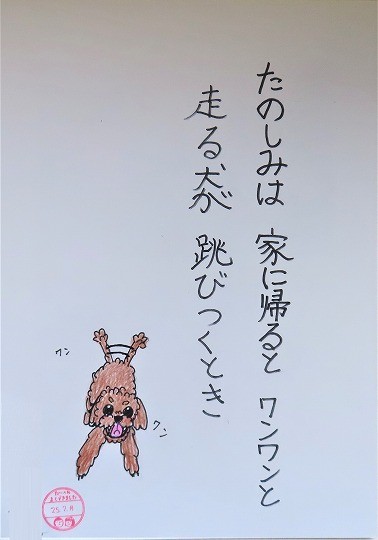 たのしみは 家に帰ると ワンワンと
走る犬が 跳びつくとき
ワン
ワン
25.7.8